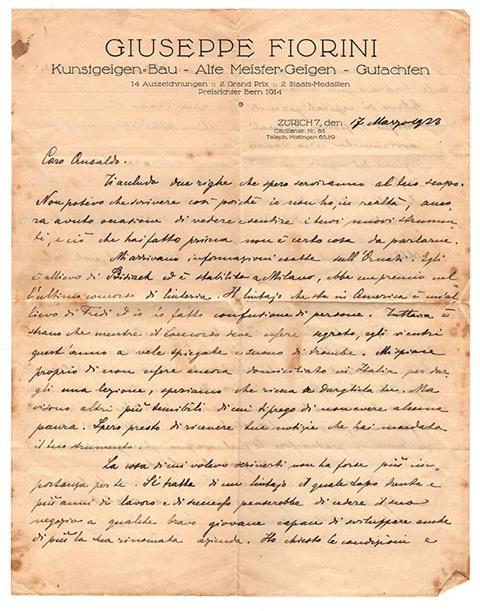 GIUSEPPE FIORINI
Kunstgeigen-Bau - Alte Meister-Geigen - Gutachten
14 Auszeichnungen :: 2 Grand Prix :: 2 Staats-Medaillen
Preisrichter Bern 1914
ZÜRICH 7, den 17 Marzo 1923
Cäcilienstr. Nr. 8
Teleph. Hottingen 65.89
Caro Ansaldo.
Ti accludo due righe che spero serviranno al tuo scopo.
Non potevo che scrivere così poichè io non ho, in realtà, anco-
ra avuto occasione di vedere e sentire i tuoi nuovi strumen-
ti, e ciò che hai fatto prima non è certo cosa da parlarne.
Mi arrivano informazioni esatte sull' Ornati. Egli
è allievo di Bisiach ed è stabilito a Milano, ebbe un premio nel-
l'ultimo concorso di liuteria. Il liutajo che sta in America è un al-
lievo di Fredi ed io fatto confusione di persone. Tuttavia è
strano che mentre il concorso deve essere segreto, egli vi entri
quest'anno a vele spiegate e suono di trombe. Mi spiace
proprio di non essere ancora domiciliato in Italia per dar-
gli una lezione, speriamo che riesca a dargliela tu. Ma
vi sono altri più temibili di cui ti prego di non avere alcuna
paura. Spero presto di ricevere tue notizie che hai mandato
il tuo strumento.
La cosa di cui volevo scriverti non ha forse più im-
portanza per te. Si tratta di un liutajo il quale dopo trenta e
più anni di lavoro e di successo penserebbe di cedere il suo
negozio a qualche bravo giovane capace di sviluppare anche
di più la sua rinomata azienda. Ho chiesto le condizioni e